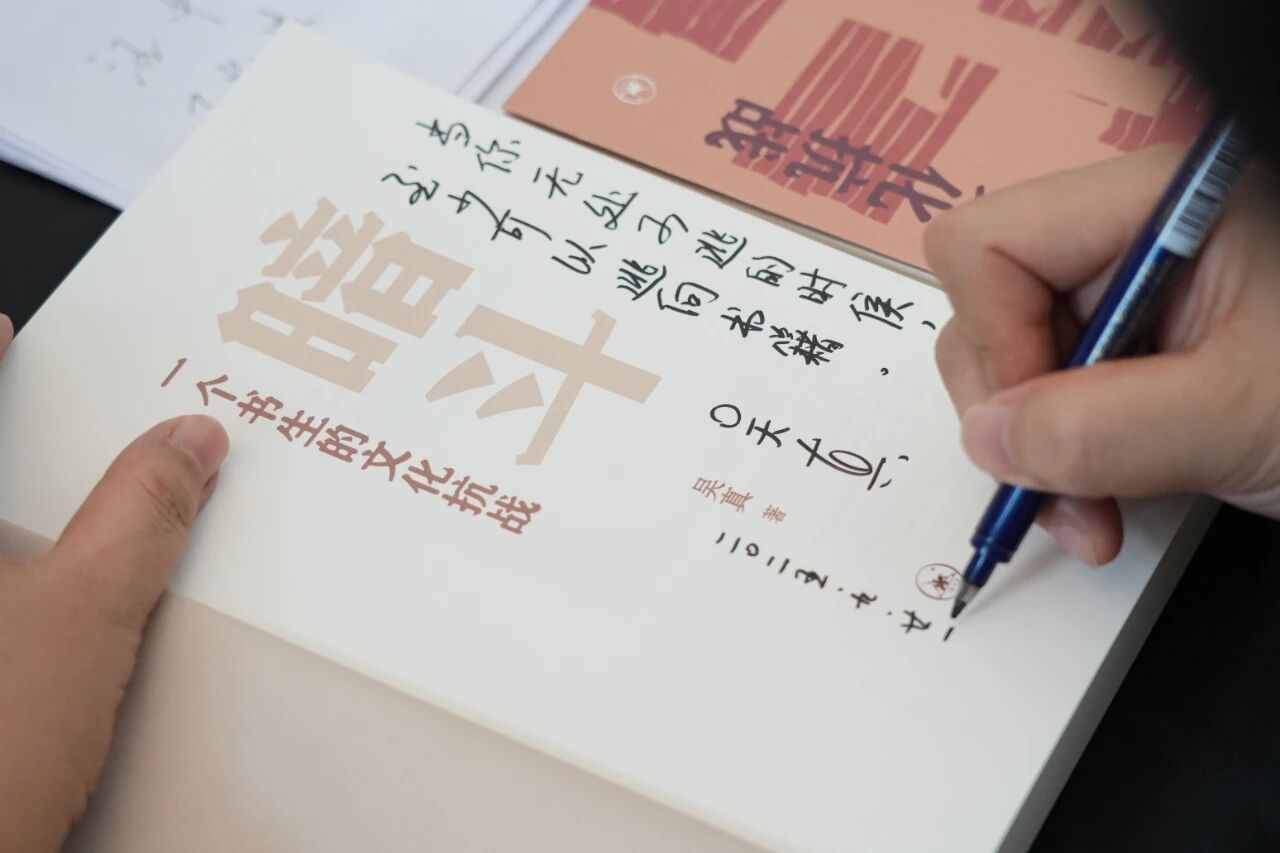 当你无处可逃的时候,
至少可以逃向书籍,
暗斗
一个书生的文化抗战
吴真
吴真 著
二〇二五.九.廿一